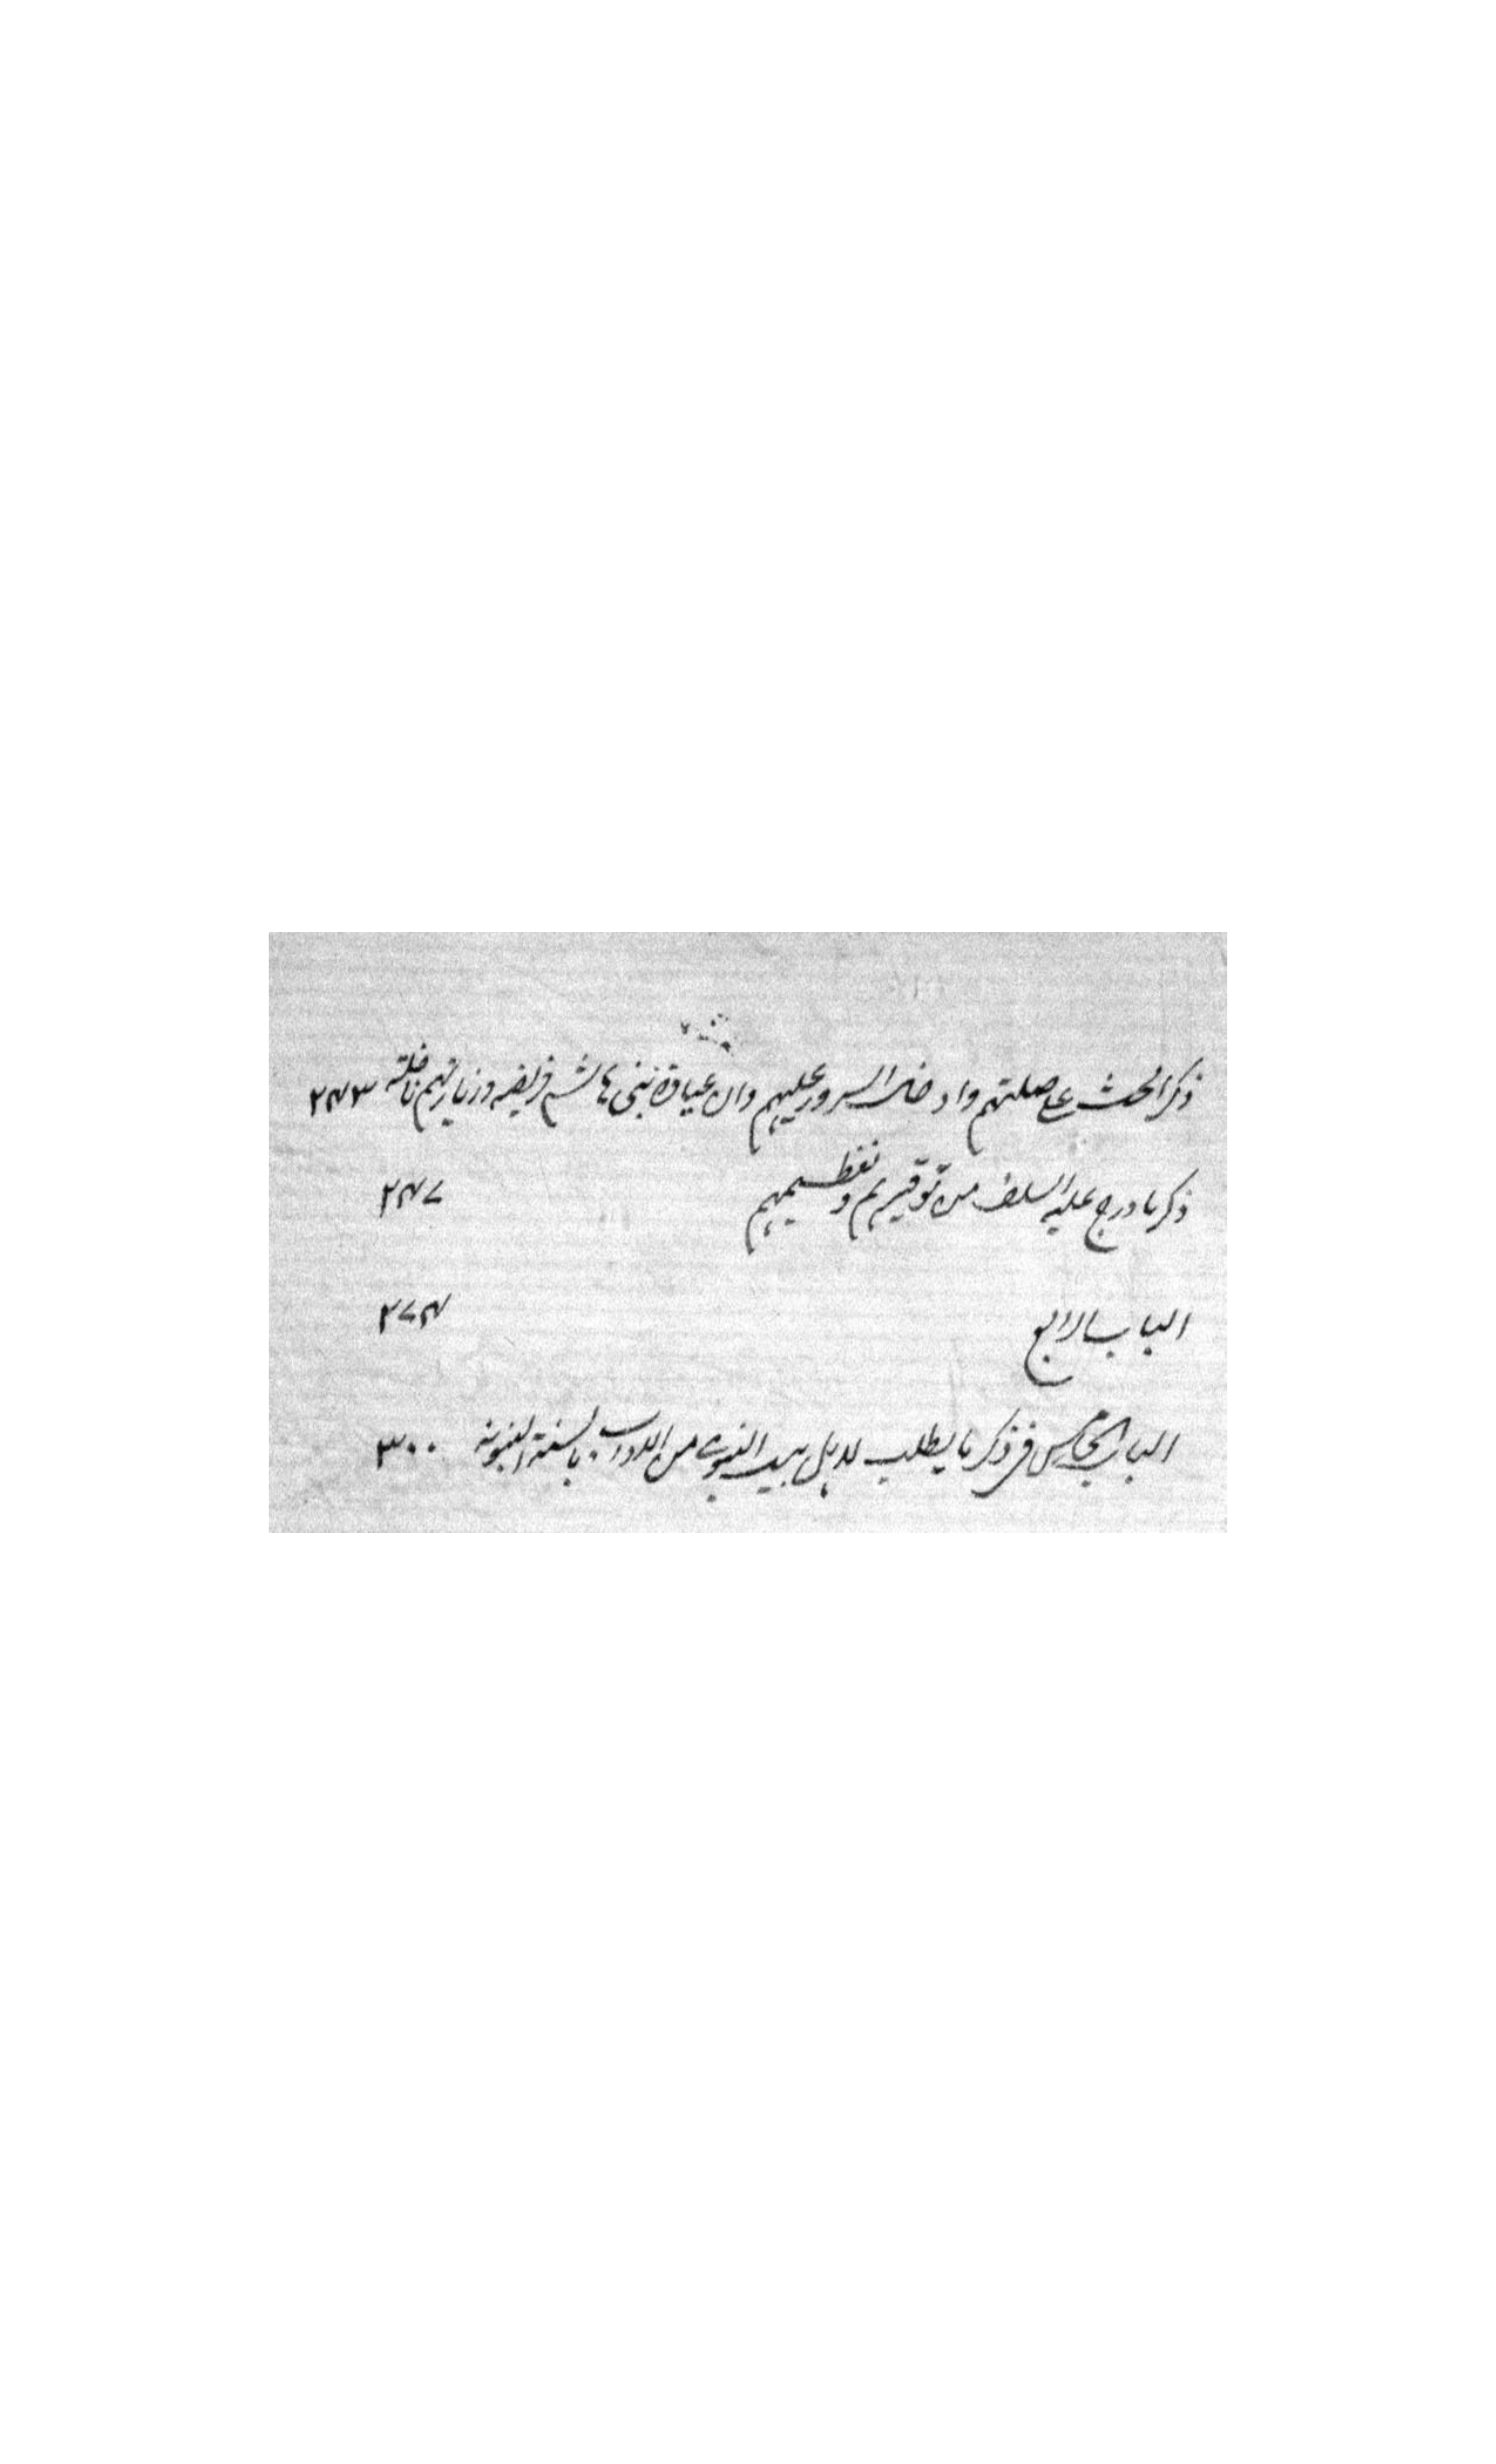 ذكر الحث على صلتهم وادخال السرور عليهم وان عيادة بنى هاشم فريضه وزيارتهم نافلة ٢٤٣
ذكر ما درج عليه السلف من توقيرهم وتعظيمهم ٢٤٧
الباب الرابع ٢٧٤
الباب الخامس فى ذكر ما يطلب لاهل بيت النبوى من الاداب بالسنة النبوية ٣٠٠